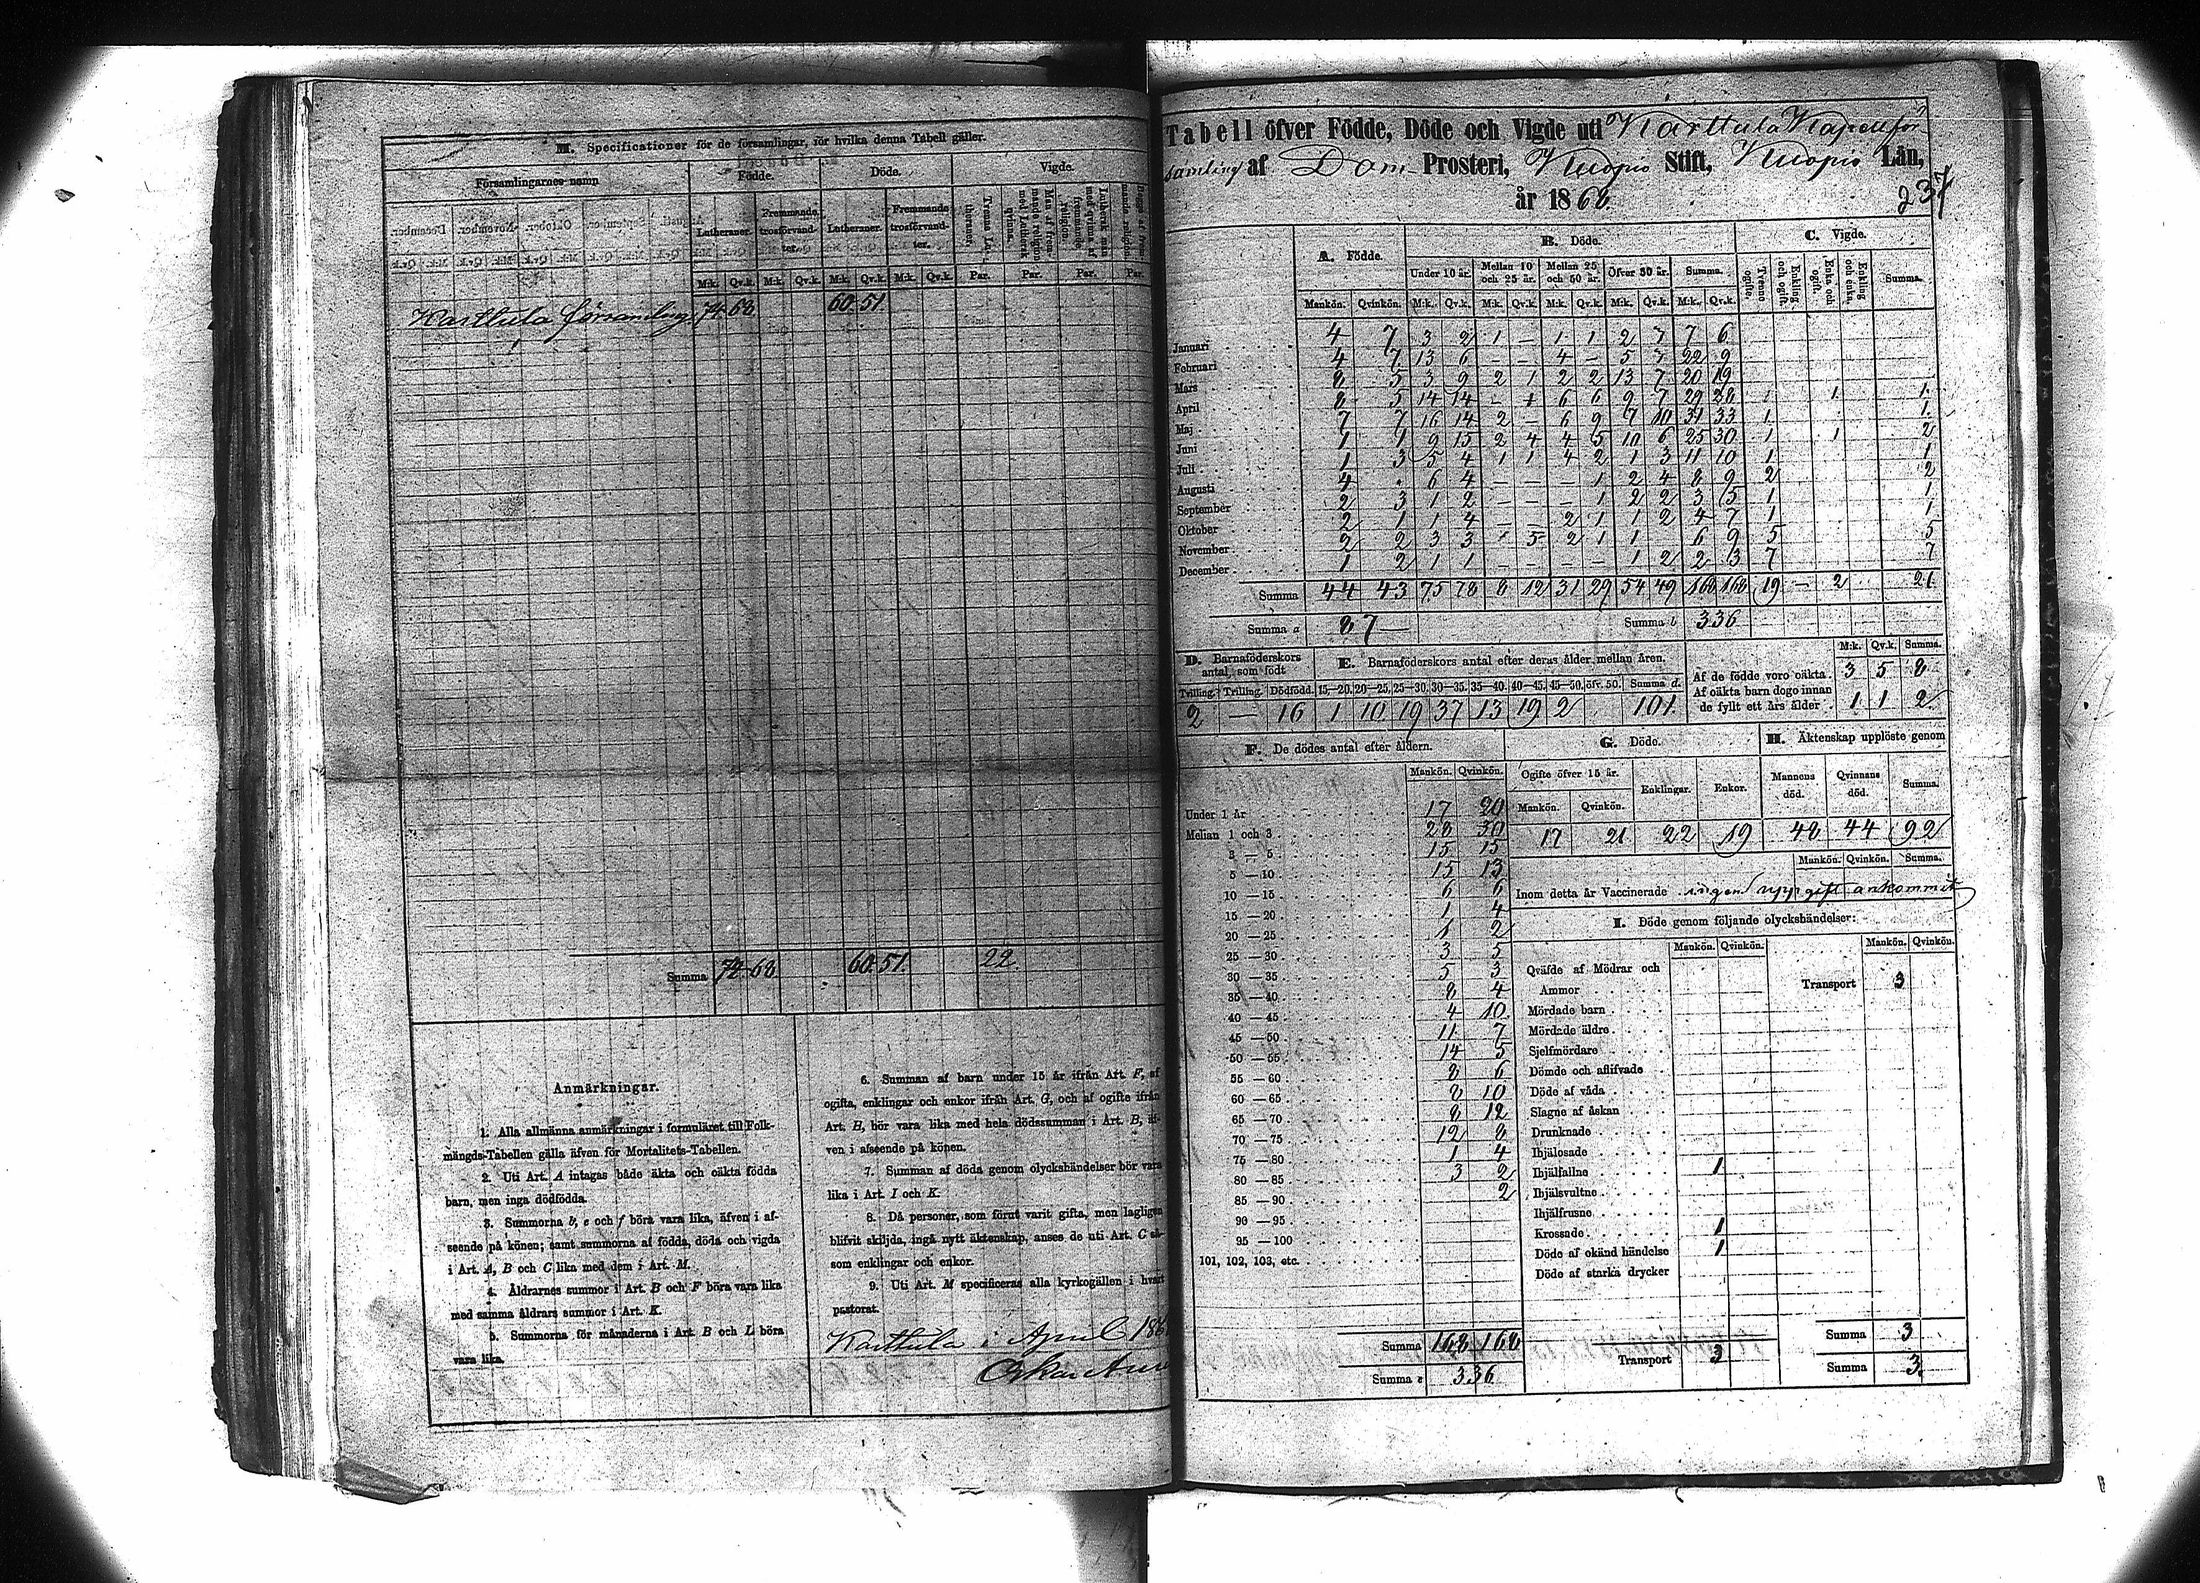 M. Specificationer för de församlingar, för hvilka denna Tabell gäller.
Församlingarnes namn
Födde.
Döde.
Vigde.
Lutheraner.
Fremmande trosförvandter.
Lutheraner.
Fremmande trosförvandter.
Tvenne Lutheraner.
M:k. Qv.k. M:k. Qv.k. M:k. Qv.k. M:k. Qv.k. Par. Par. Par. Par.
Karttula församling 74 68 60. 51.
Summa 74 68 60. 51. 22.
Anmärkningar.
1. Alla allmänna anmärkningar i formuläret till Folk-
mängds-Tabellen gälla äfven för Mortalitets-Tabellen.
2. Uti Art. A intagas både äkta och oäkta födda
barn, men inga dödfödda.
3. Summorna b, e och f böra vara lika, äfven i af-
seende på könen; samt summorna af födda, döda och vigda
i Art. A, B och C lika med dem i Art. M.
4. Åldrarnes summor i Art. B och F böra vara lika
med samma åldrars summor i Art. K.
5. Summorna för månaderna i Art. B och L böra
vara lika.
6. Summan af barn under 15 år ifrån Art. F, af
ogifta, enklingar och enkor ifrån Art. G, och af ogifte ifrån
Art. H, bör vara lika med hela dödssumman i Art. B, äf-
ven i afseende på könen.
7. Summan af döda genom olyckshändelser bör vara
lika i Art. I och K.
8. Då personer, som förut varit gifta, men lagligen
blifvit skiljda, ingå nytt äktenskap, anses de uti Art. C så-
som enklingar och enkor.
9. Uti Art. M specificeras alla kyrkogällen i hvart
pastorat.
Karttula i April
Tabell öfver Födde, Döde och Vigde uti Karttula Kapellför
samling af Dom Prosteri, Kuopio Stift, Kuopio Län,
år 1868.
237
A. Födde.
B. Döde.
C. Vigde.
Under 10 år. Mellan 10 och 25 år. Mellan 25 och 50 år. Öfver 50 år. Summa.
Tvenne ogifte. Enkling och ogift. Enka och ogift. Enkling och enka. Summa.
Mankön. Qvinkön. M:k. Qv.k. M:k. Qv.k. M:k. Qv.k. M:k. Qv.k. M:k. Qv.k.
Januari 4 7 3 2 1 — 1 1 2 7 7 6
Februari 4 7 13 6 — — 4 — 5 7 22 9
Mars 8 5 3 9 2 1 2 2 13 7 20 19
April 8 5 14 14 — 1 6 6 9 7 29 28 1 1.
Maj 7 7 16 14 2 — 6 9 7 10 31 33 1. 1.
Juni 1 1 9 15 2 4 4 5 10 6 25 30 1 1 2
Juli 1 3 5 4 1 1 4 2 1 3 11 10 1 1
Augusti 4 . 6 4 — — — 1 2 4 8 9 2 2
September 2 3 1 2 — — — 1 2 2 3 5 1 1
Oktober 2 1 1 4 — — 2 1 1 2 4 7 1 1
November 2 2 3 3 5 2 1 1 6 9 5 5
December 1 2 1 1 — — — — 1 2 2 3 7 7
Summa 44 43 75 78 8 12 31 29 54 49 168 168 19 — 2 21.
Summa a 87 — Summa b 336
D. Barnaföderskors antal, som födt
E. Barnaföderskors antal efter deras ålder mellan åren.
M:k. Qv.k. Summa.
Trilling. Trilling. Dödfödd. 15—20. 20—25. 25—30. 30—35. 35—40. 40—45. 45—50. öfv. 50. Summa d.
2 — 16 1 10 19 37 13 19 2 101.
Af de födde voro oäkta. 3 5 8
Af oäkta barn dogo innan
de fyllt ett års ålder 1 1 2
F. De dödes antal efter åldern.
Mankön. Qvinkön.
Under 1 år 17 20
Mellan 1 och 3 28 30
3 — 5 15 15
5 — 10 15 13
10 — 15 6 6
15 — 20 1 4
20 — 25 1 2
25 — 30 3 5
30 — 35 5 3
35 — 40 8 4
40 — 45 4 10
45 — 50 11 7
50 — 55 14 5
55 — 60 8 6
60 — 65 8 10
65 — 70 8 12
70 — 75 12 8
75 — 80 1 4
80 — 85 3 2
85 — 90 2
90 — 95
95 — 100
101, 102, 103, etc.
Summa 168 168
Summa e 336
G. Döde.
Ogifte öfver 15 år. Enklingar. Enkor.
Mankön. Qvinkön.
17 21 22 19
H. Äktenskap upplöste genom
Mannens död. Qvinnans död. Summa.
48 44 92
Mankön. Qvinkön. Summa.
Inom detta år Vaccinerade ingen uppgift ankommit
I. Döde genom följande olyckshändelser:
Mankön. Qvinkön. Mankön. Qvinkön.
Qväfde af Mödrar och
Ammor
Mördade barn
Mördade äldre
Sjelfmördare
Dömde och aflifvade
Döde af våda
Slagne af åskan
Drunknade
Ihjälosade
Ihjälfallne 1
Ihjälsvultne
Ihjälfrusne
Krossade 1
Döde af okänd händelse 1
Döde af starka drycker
Transport 3
Transport 3
Summa 3
Summa 3.